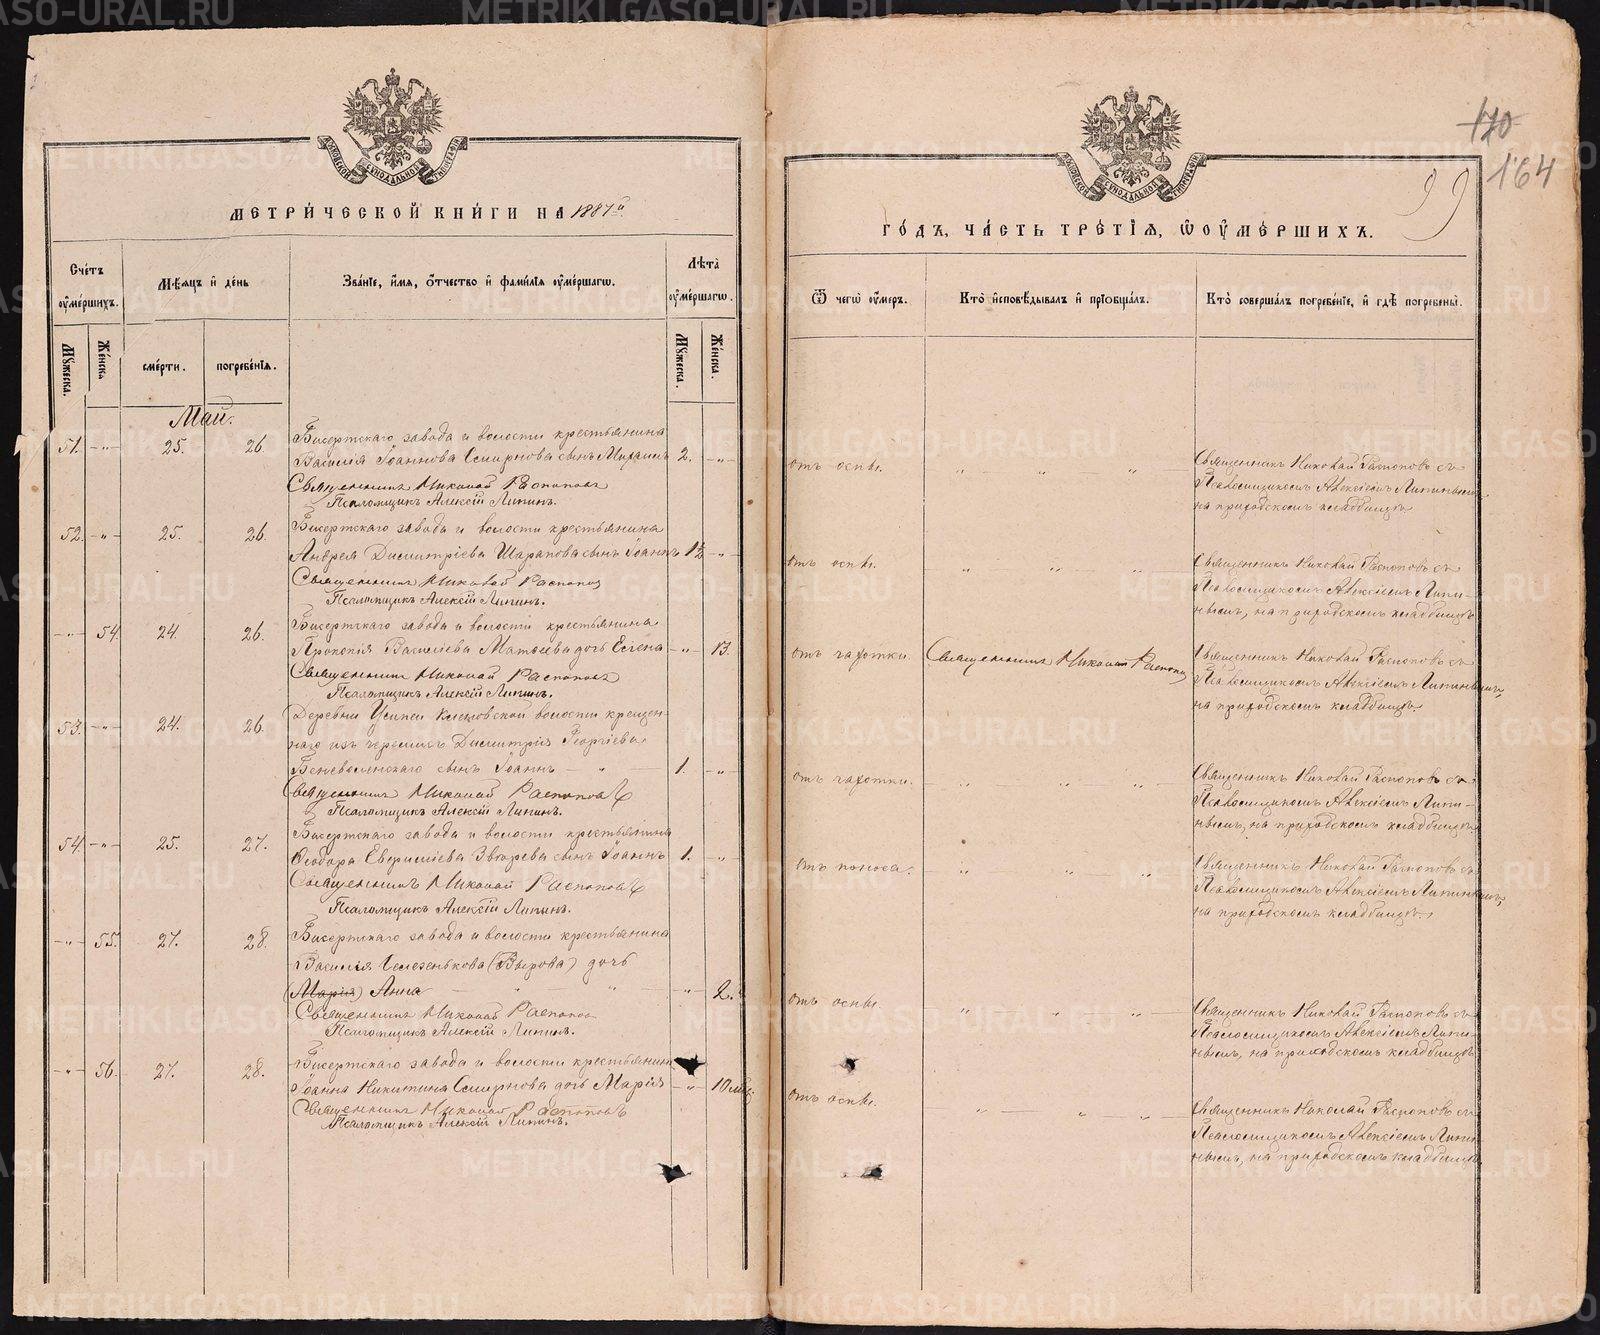 МЕТРИ́ЧЕСКОЙ КНИ́ГИ НА 1887й
Сче́тъ оу҆ме́ршихъ.
Мѣ́сяцъ и҆ де́нь
Зва́нїе, и҆́мя, о҆́тчество и҆ фами́лїя оу҆ме́ршагѡ.
Лѣ́та оу҆ме́ршагѡ.
Мꙋ́жеска. Же́нска.
сме́рти. погребе́нїя.
Мꙋ́жеска. Же́нска.
Май.
51. -„- 25. 26. Бисертскаго завода и волости крестьянина
Василія Іоаннова Смирнова сынъ Михаилъ 2. -„-
Священникъ Николай Распоповъ
Псаломщикъ Алексій Липинъ.
52. -„- 25. 26. Бисертскаго завода и волости крестьянина
Андрея Димитріева Шарапова сынъ Іоаннъ 1½ -„-
Священникъ Николай Распопов
Псаломщикъ Алексій Липинъ.
-„- 54. 24. 26. Бисертскаго завода и волости крестьянина
Прокопія Василіева Матвѣева дочь Елена -„- 13.
Священникъ Николай Распоповъ
Псаломщикъ Алексій Липинъ.
53. -„- 24. 26. Деревни Усипки Кленовской волости крещен-
наго изъ черемисъ Димитрія Георгіева
Беневоленскаго сынъ Іоаннъ — „ — 1. -„-
Священникъ Николай Распоповъ
Псаломщикъ Алексій Липинъ.
54. -„- 25. 27. Бисертскаго завода и волости крестьянина
Ѳеодора Звѣрева сынъ Іоаннъ 1. -„-
Священникъ Николай Распоповъ
Псаломщикъ Алексій Липинъ.
-„- 55. 27. 28. Бисертскаго завода и волости крестьянина
Василія Селезенькова (Вырова) дочь
(Марія) Анна — „ — „ — „ 2.
Священникъ Николай Распопов
Псаломщикъ Алексій Липинъ.
-„- 56. 27. 28. Бисертскаго завода и волости крестьянин
Іоанна Никитина Смирнова дочь Марія -„- 10 мѣс.
Священникъ Николай Распоповъ
Псаломщикъ Алексій Липинъ.
170
164
99
ГО́ДЪ, ЧА́СТЬ ТРЕ́ТЇЯ, Ѡ҆ ОУ҆МЕ́РШИХЪ.
Ѿ чегѡ̀ оу҆́меръ.
Кто̀ и҆сповѣ́дывалъ и҆ прїѡбща́лъ.
Кто̀ соверша́лъ погребе́нїе, и҆ гдѣ̀ погребены̀.
отъ оспы. „ — „ — „ Священникъ Николай Распоповъ съ
Псаломщикомъ Алексіемъ Липинымъ
на приходскомъ кладбищѣ
отъ оспы. „ — „ — „ Священникъ Николай Распоповъ съ
Псаломщикомъ Алексіемъ Липи-
нымъ, на приходскомъ кладбищѣ
отъ чахотки. Священникъ Николай Распопов Священникъ Николай Распоповъ съ
Псаломщикомъ Алексіемъ Липинымъ,
на приходскомъ кладбищѣ.
отъ чахотки. „ — „ — „ Священникъ Николай Распоповъ съ
Псаломщикомъ Алексіемъ Липи-
нымъ, на приходскомъ кладбищѣ
отъ поноса. „ — „ — „ Священникъ Николай Распоповъ съ
Псаломщикомъ Алексіемъ Липинымъ,
на приходскомъ кладбищѣ.
отъ оспы. „ — „ — „ Священникъ Николай Распоповъ съ
Псаломщикомъ Алексіемъ Липи-
нымъ, на приходскомъ кладбищѣ
отъ оспы. „ — „ — „ Священникъ Николай Распоповъ съ
Псаломщикомъ Алексіемъ Липи-
нымъ, на приходскомъ кладбищѣ
METRIKI.GASO-URAL.RU